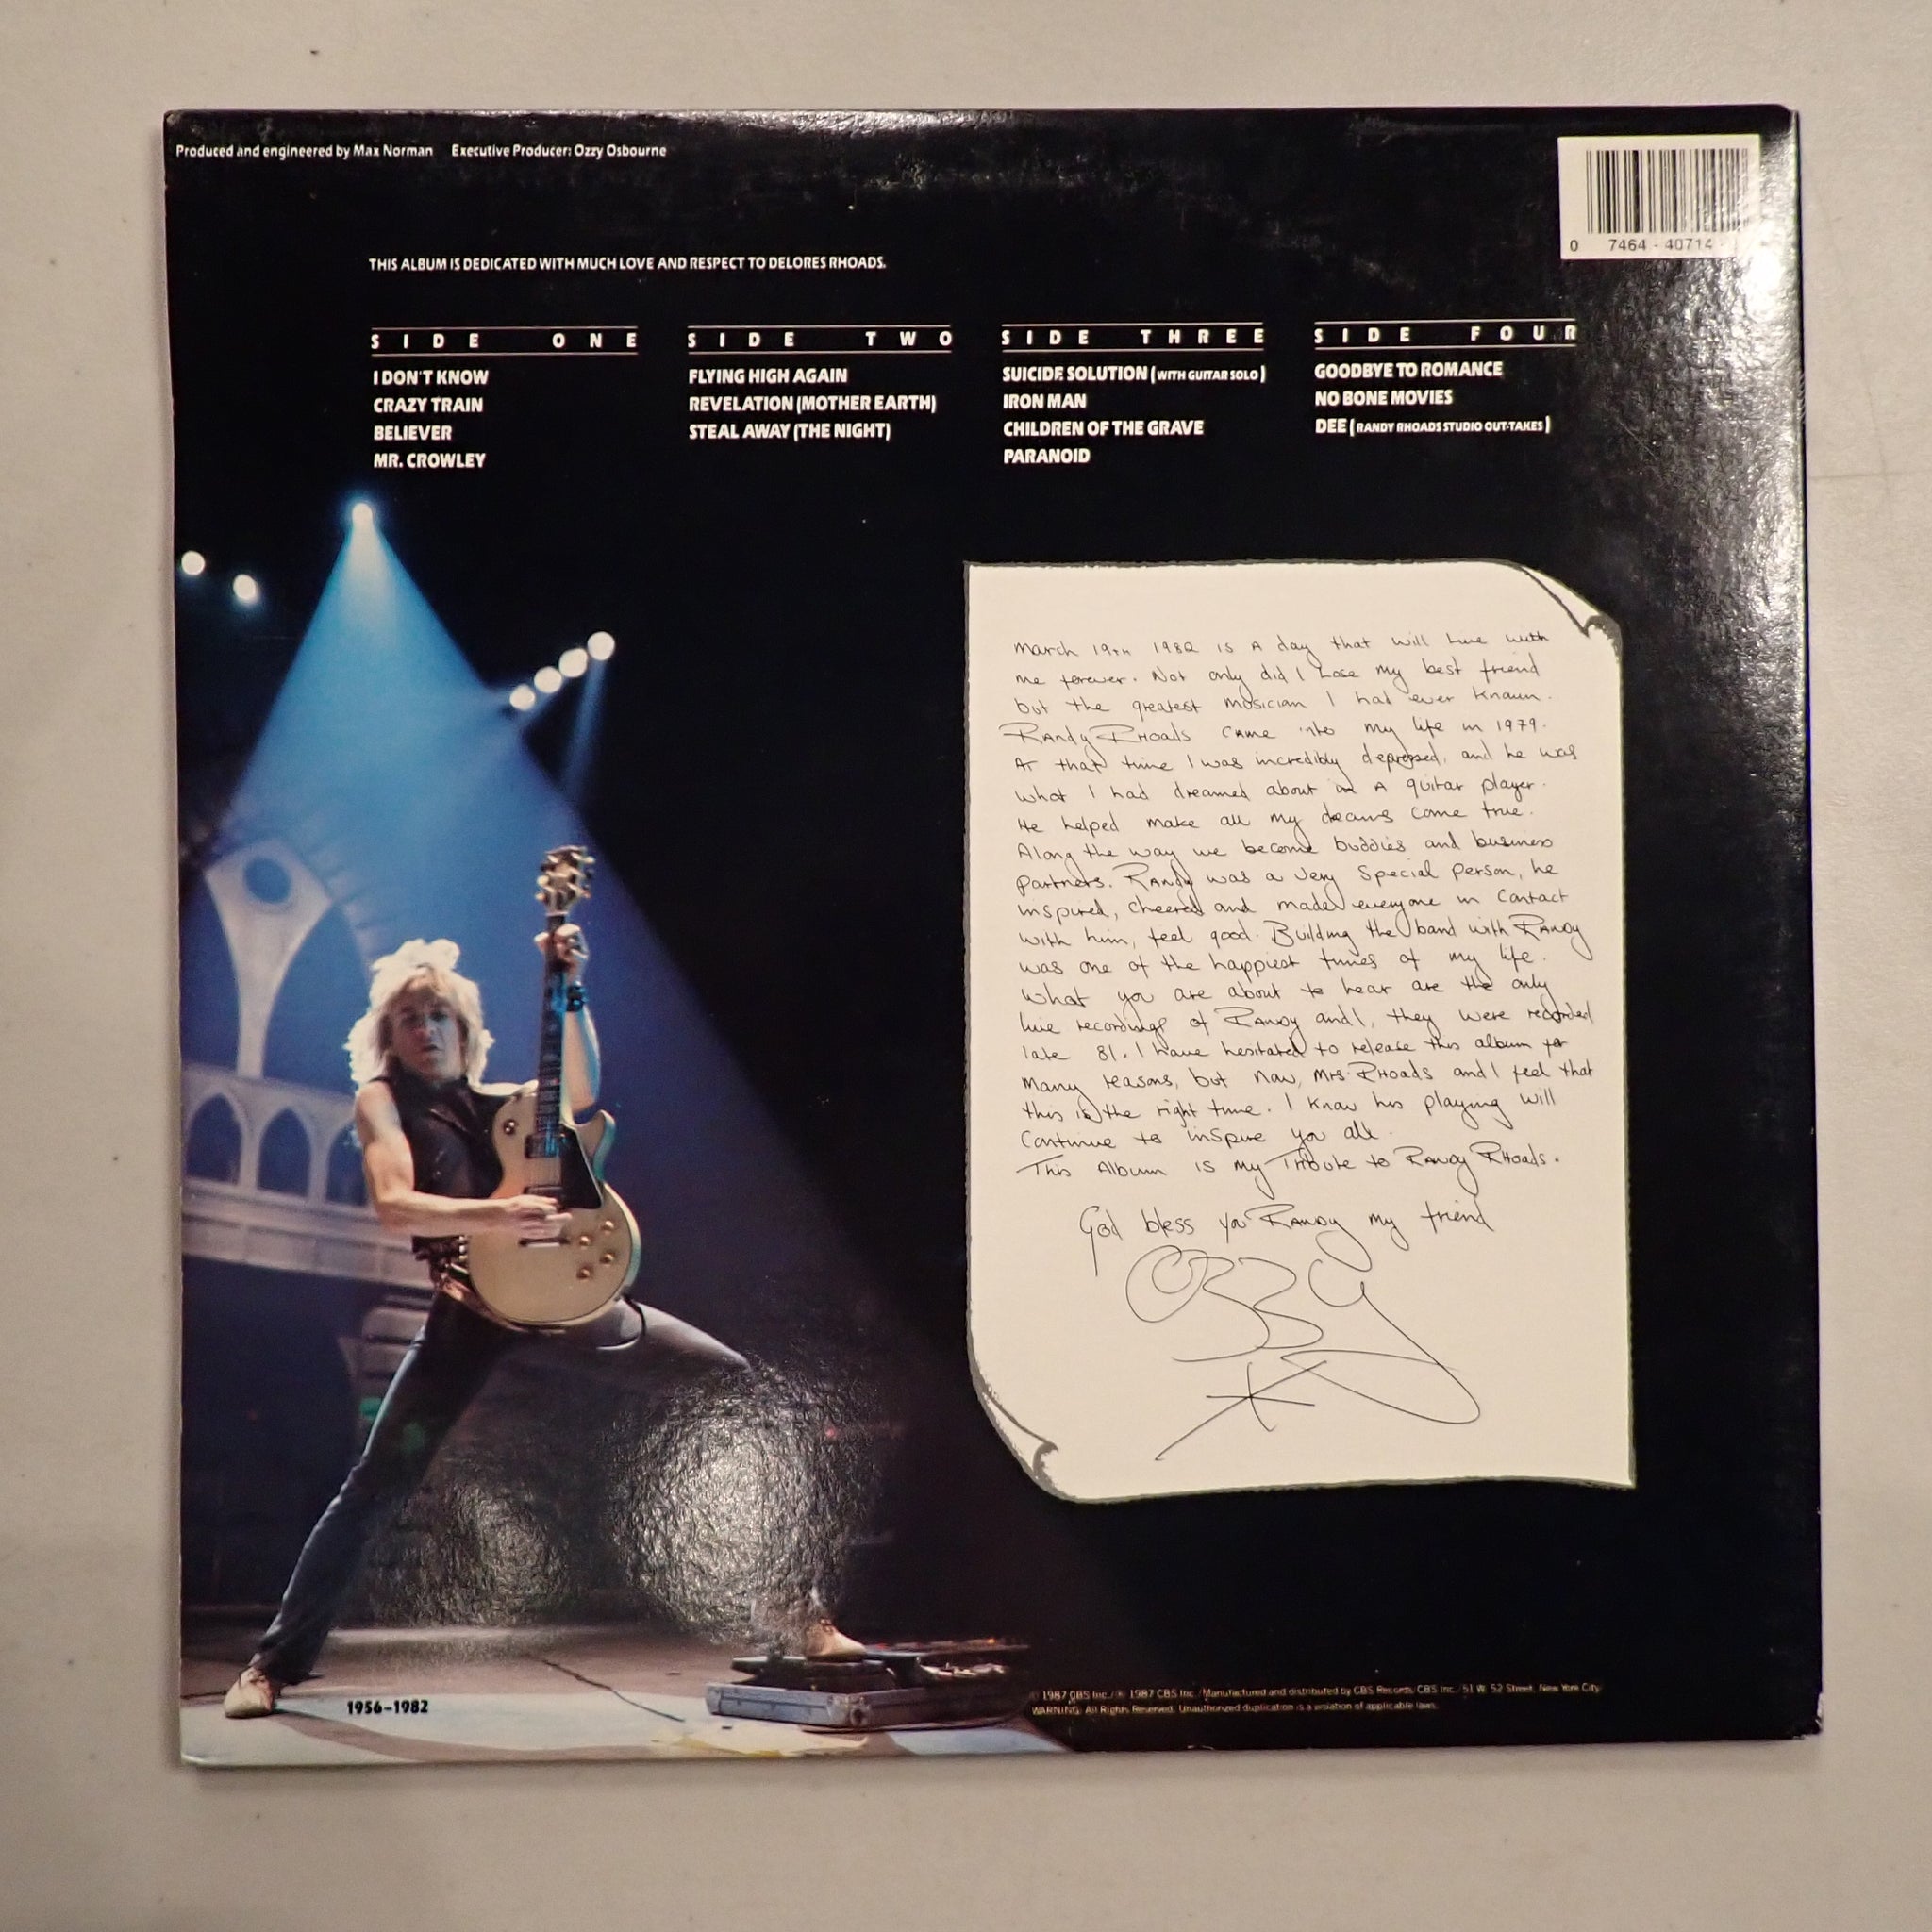 Produced and engineered by Max Norman Executive Producer: Ozzy Osbourne
0 7464 - 40714 -
THIS ALBUM IS DEDICATED WITH MUCH LOVE AND RESPECT TO DELORES RHOADS.
SIDE ONE
I DON'T KNOW
CRAZY TRAIN
BELIEVER
MR. CROWLEY
SIDE TWO
FLYING HIGH AGAIN
REVELATION (MOTHER EARTH)
STEAL AWAY (THE NIGHT)
SIDE THREE
SUICIDE SOLUTION (WITH GUITAR SOLO)
IRON MAN
CHILDREN OF THE GRAVE
PARANOID
SIDE FOUR
GOODBYE TO ROMANCE
NO BONE MOVIES
DEE (RANDY RHOADS STUDIO OUT-TAKES)
March 19TH 1982 is a day that will live with
me forever. Not only did I lose my best friend
but the greatest musician I had ever known.
Randy Rhoads came into my life in 1979.
At that time I was incredibly depressed, and he was
what I had dreamed about in a guitar player.
He helped make all my dreams come true.
Along the way we become buddies and business
partners. Randy was a very special person, he
inspired, cheered and made everyone in contact
with him, feel good. Building the band with Randy
was one of the happiest times of my life.
What you are about to hear are the only
live recordings of Randy and I, they were recorded
late 81. I have hesitated to release this album for
many reasons, but now, Mrs. Rhoads and I feel that
this is the right time. I know his playing will
continue to inspire you all.
This Album is my Tribute to Randy Rhoads.
God bless you Randy my friend
Ozzy
1956–1982
© 1987 CBS Inc./℗ 1987 CBS Inc./Manufactured and distributed by CBS Records/CBS Inc./51 W. 52 Street, New York City
WARNING: All Rights Reserved. Unauthorized duplication is a violation of applicable laws.